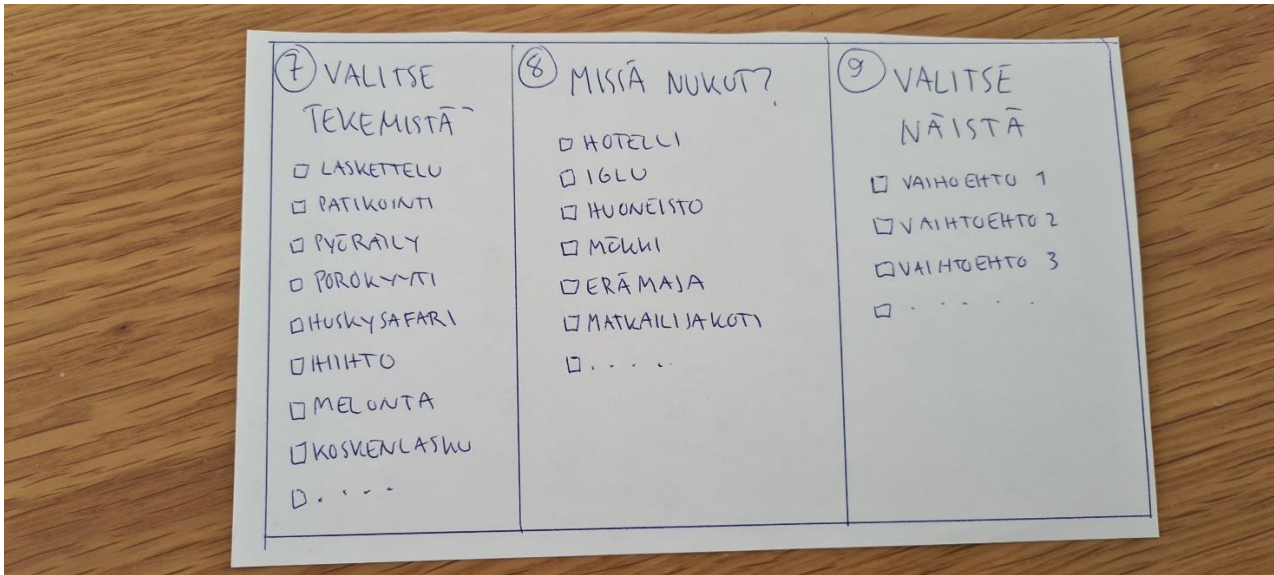 7 VALITSE
TEKEMISTÄ
☐ LASKETTELU
☐ PATIKOINTI
☐ PYÖRÄILY
☐ POROKYYTI
☐ HUSKYSAFARI
☐ HIIHTO
☐ MELONTA
☐ KOSKENLASKU
☐ . . . .
8 MISSÄ NUKUT?
☐ HOTELLI
☐ IGLU
☐ HUONEISTO
☐ MÖKKI
☐ ERÄMAJA
☐ MATKAILIJAKOTI
☐ . . . . .
9 VALITSE
NÄISTÄ
☐ VAIHOEHTO 1
☐ VAIHTOEHTO 2
☐ VAIHTOEHTO 3
☐ . . . . .